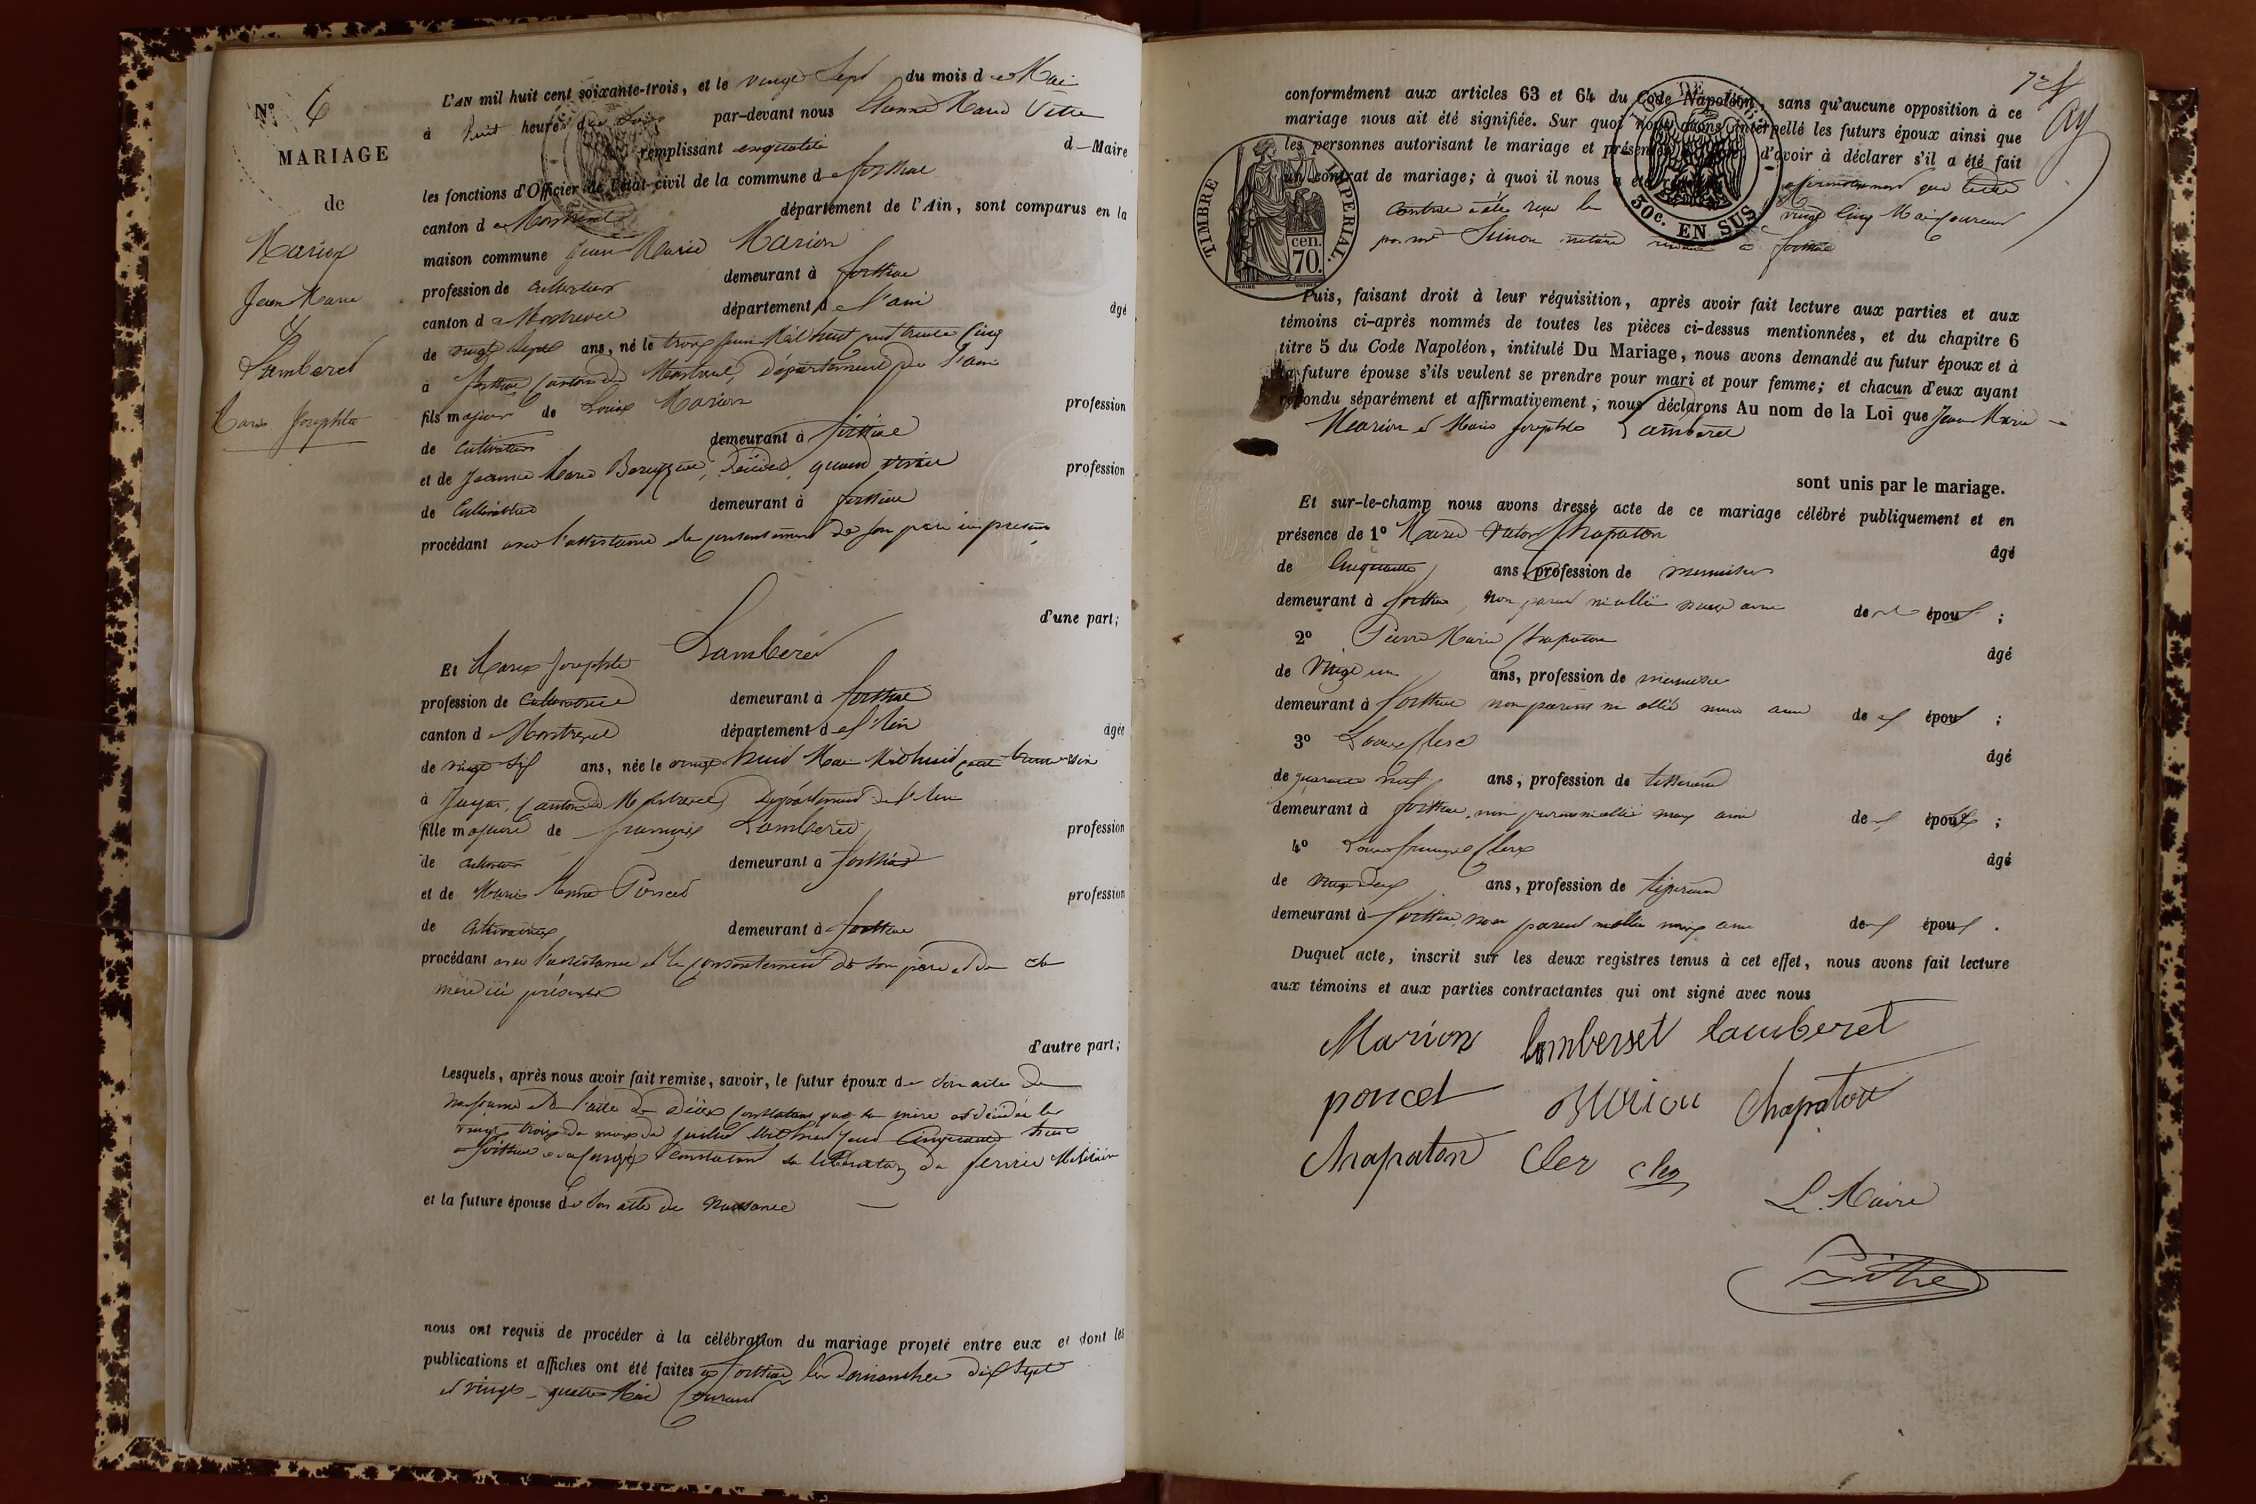 N° 6
MARIAGE
de
Marion
Jean Marie
&
Lamberet
Marie Josephte
L'AN mil huit cent soixante-trois, et le vingt Sept du mois de Mai
à huit heures du Soir par-devant nous Etienne Marie Vitte
remplissant enqualité d Maire
les fonctions d'Officier de l'état-civil de la commune de
canton de Montrevel département de l'Ain, sont comparus en la
maison commune Jean Marie Marion
profession de cultivateur demeurant à
canton de Montrevel département de l'ain âgé
de vingt sept ans, né le trois juin Mil huit cent trente Cinq
à canton de Montrevel, Département de l'ain
fils majeur de Louis Marion profession
de cultivateur demeurant à
et de Jeanne Marie décédée, quand vivait profession
de Cultivatrice demeurant à
procédant avec l'assistance et le consentement de son père ici présent
d'une part;
Et Marie Josephte Lamberet
profession de Cultivatrice demeurant à
canton de Montrevel département de l'Ain âgée
de vingt Six ans, née le vingt huit Mai Mil huit cent trente six
à Jayat, canton de Montrevel, Département de l'Ain
fille majeure de françois Lamberet profession
de cultivateur demeurant à
et de Marie Poncet profession
de cultivatrice demeurant à
procédant avec l'assistance et le consentement de son père et de sa
mère ici présents
d'autre part;
Lesquels, après nous avoir fait remise, savoir, le futur époux de Son acte de
naissance et de l'acte de décès constatant que sa mère est décédée le
vingt trois du mois de juillet Mil huit cent Cinquante
à et un Congé Constatant sa libération du Service Militaire
et la future épouse de Son acte de Naissance
nous ont requis de procéder à la célébration du mariage projeté entre eux et dont les
publications et affiches ont été faites à les Dimanches dix Sept
et vingt-quatre Mai Courant
7e f
conformément aux articles 63 et 64 du Code Napoléon, sans qu'aucune opposition à ce
mariage nous ait été signifiée. Sur quoi nous avons interpellé les futurs époux ainsi que
les personnes autorisant le mariage et présentes d'avoir à déclarer s'il a été fait
un contrat de mariage; à quoi il nous a été affirmativement que ledit
Contrat a été reçu le vingt Cinq Mai Courant
par me notaire à
TIMBRE IMPERIAL.
cen.
70.
50c. EN SUS
Puis, faisant droit à leur réquisition, après avoir fait lecture aux parties et aux
témoins ci-après nommés de toutes les pièces ci-dessus mentionnées, et du chapitre 6
titre 5 du Code Napoléon, intitulé Du Mariage, nous avons demandé au futur époux et à
la future épouse s'ils veulent se prendre pour mari et pour femme; et chacun d'eux ayant
répondu séparément et affirmativement, nous déclarons Au nom de la Loi que Jean Marie
Marion et Marie Josephte Lamberet
sont unis par le mariage.
Et sur-le-champ nous avons dressé acte de ce mariage célébré publiquement et en
présence de 1° Marie Chapaton âgé
de Cinquante ans, profession de menuisier
demeurant à non parent ni allié mais ami des époux ;
2° Pierre Marie Chapaton âgé
de Vingt un ans, profession de menuisier
demeurant à non parent ni allié mais ami des époux ;
3° Louis Clerc âgé
de quarante neuf ans, profession de tisserand
demeurant à non parent ni allié mais ami des époux ;
4° Louis françois Clerc âgé
de vingt deux ans, profession de tisserand
demeurant à non parent ni allié mais ami des époux .
Duquel acte, inscrit sur les deux registres tenus à cet effet, nous avons fait lecture
aux témoins et aux parties contractantes qui ont signé avec nous
Marion lamberset lamberet
poncet Marion Chapaton
Chapaton Cler cler
Le Maire
Vitte